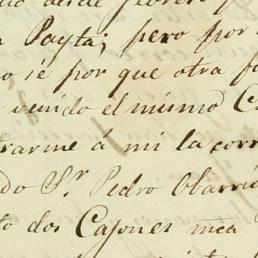 desde
Payta; pero por
sé por que otra
venido el mismo
á mi la
Sr. Pedro Obarri
dos Cajones